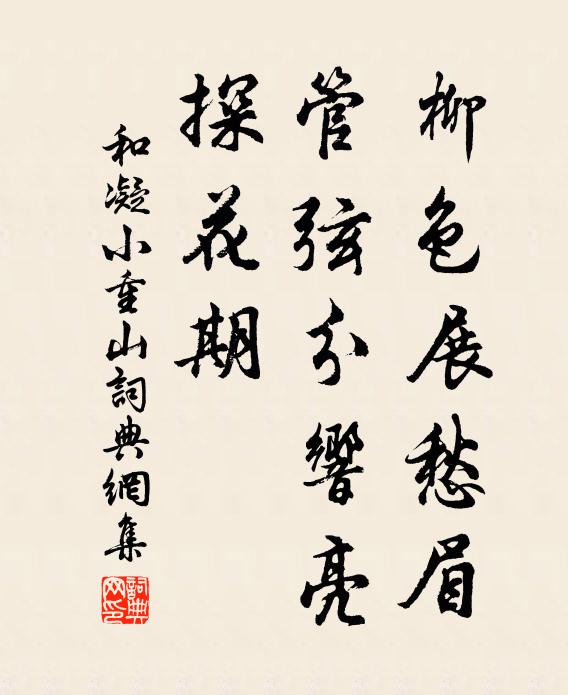 柳色展愁眉
管弦分響亮
探花期
和凝小重山詞典網集
詞典網印